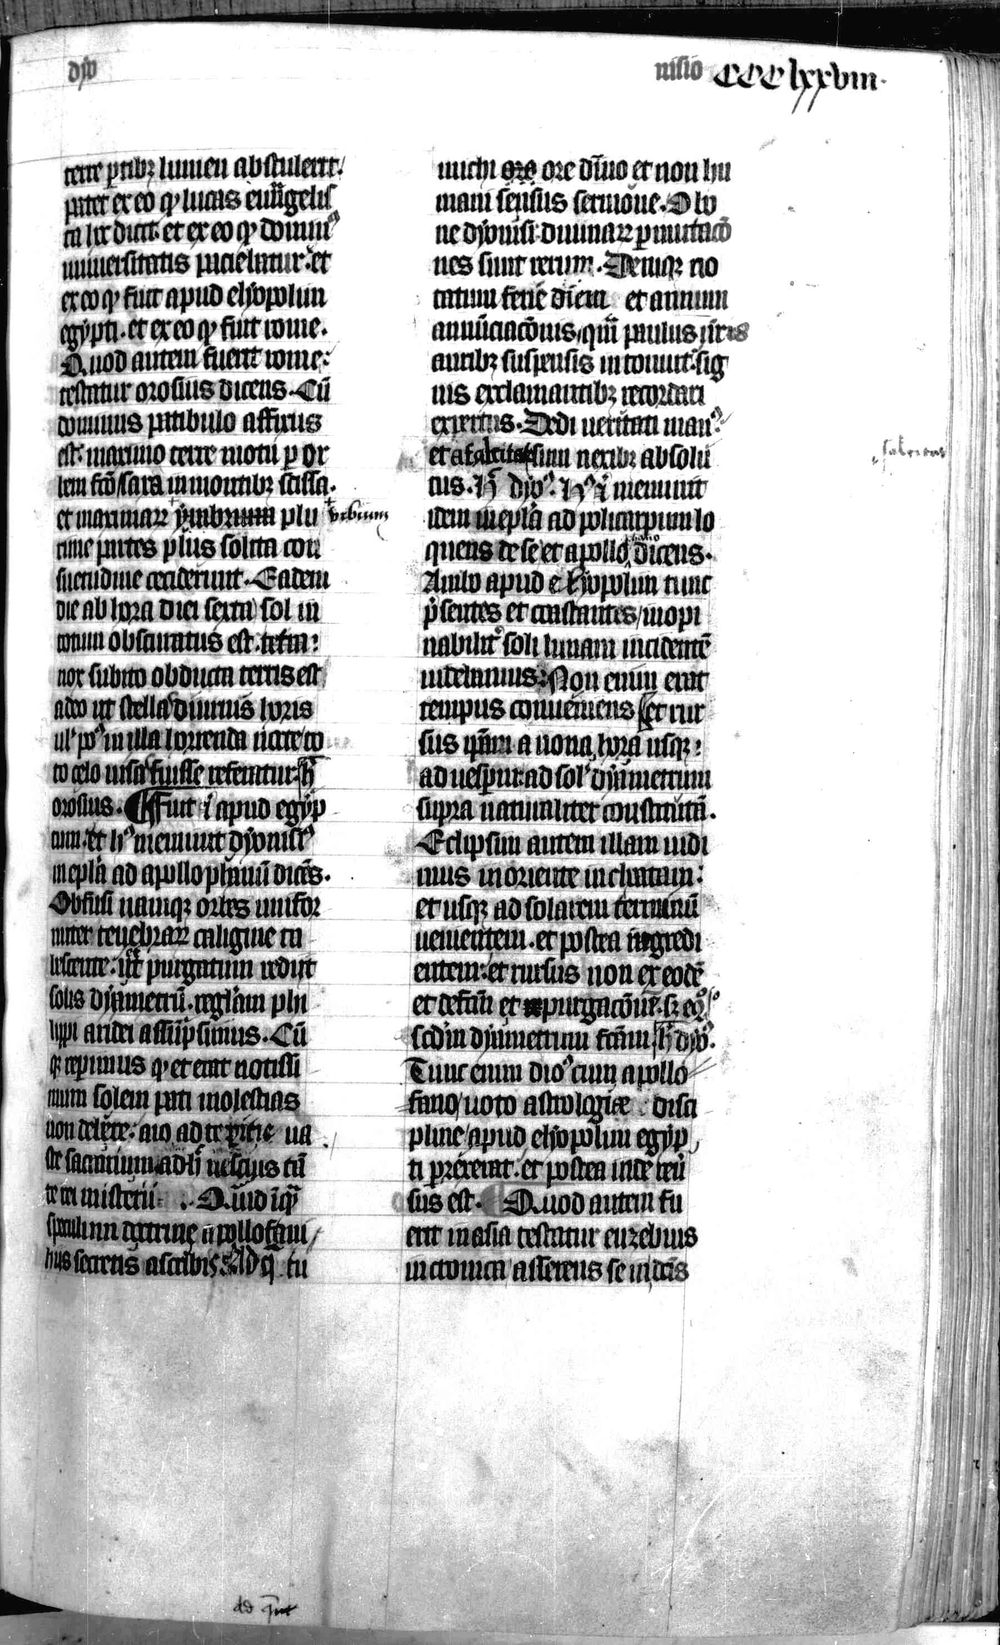 dyo
nisio CCClxxviii.
terre ꝑtibꝫ lumen abstulerit.
patet ex eo ꝙ lucas euāgelis
ta hec dicit. et ex eo ꝙ dominꝰ
uniuersitatis paciebatur. et
ex eo ꝙ fuit apud elyopolim
egypti. et ex eo ꝙ fuit rome.
Quod autem fuerit rome:
testatur orosius dicens. Cū
dominus patibulo affixus
est. maximo terre motu ꝑ or
bem fc̄o saxa in montibꝫ scissa.
et maximaꝝ ymbrium plu urbium
rime partes plus solita con
suetudine ceciderunt. Eadem
die ab hora diei sexta sol in
totum obscuratus est. tetra:
nox subito obducta terris est
adeo ut stellas diurnis horis
ul' poꝰ in illa horrenda nocte to
to celo uisas fuisse referatur. h̄
orosius. Fuit ī apud egyp
tum. et hꝰ meminit dyonisiꝰ
in epl'a ad apollophanū dicēs.
Obfusi namqꝫ orbes unifor
miter tenebraꝝ caligine ta
bescente: ut purgatum redijt
solis dyametrū. regl'am phi
lippi aridei assūpsimus. Cū
qꝫ reperimus ꝙ et erat notissi
mum solem pati molestias
non debere: aio ad te ua
ste sacrarium adh̄ nescijus tā
te rei misterū. Quid īqꝫ
speculum doctrine apollofani
hijs secretis ascribis. Ad q̄ tu
michi ore ore diuīo et non hu
mani sensus sermone. O bo
ne dyonisi diuinaꝝ ꝑmutacō
nes sunt rerum. Deniqꝫ no
tatum ferie diem et annum
annūciacōnis, quā paulus nr̄is
auribꝫ suspensis intonuit. sig
nis exclamantibꝫ recordati
expertus. Dedi ueritati manꝰ
et a falsitatis sum nexibꝫ absolu
tus. h̄ dyoꝰ. Hꝰ ī meminit
idem in epl'a ad policarpum lo
quens de se et apollophano dicens.
Ambo apud elyopolim tunc
p̄sentes et constantes, inopi
nabilit̄ soli lunam incidentē
uidebamus: Non enim erat
tempus conueniens et rur
sus ip̄am a nona hora usqꝫ:
ad uesperum ad sol' dyametrum
supra naturaliter constitutā.
Eclipsim autem illam uidi
mus in oriente inchoatam:
et usqꝫ ad solarem terminū
uenientem. et postea regredi
entem. et rursus non ex eodē
et defcm̄ et purgacōnē. sꝫ eꝯꝰ
scd̄m dyametrum fcām h̄ dyoꝰ.
Tunc enim dioꝰ cum apollo
fano uoto astrologie disci
pline apud elyopolim egyp
ti ꝓrexerat. et postea inde reū
sus est. Quod autem fu
erit in asia testatur euzebius
in cronica asserens se in dcīs